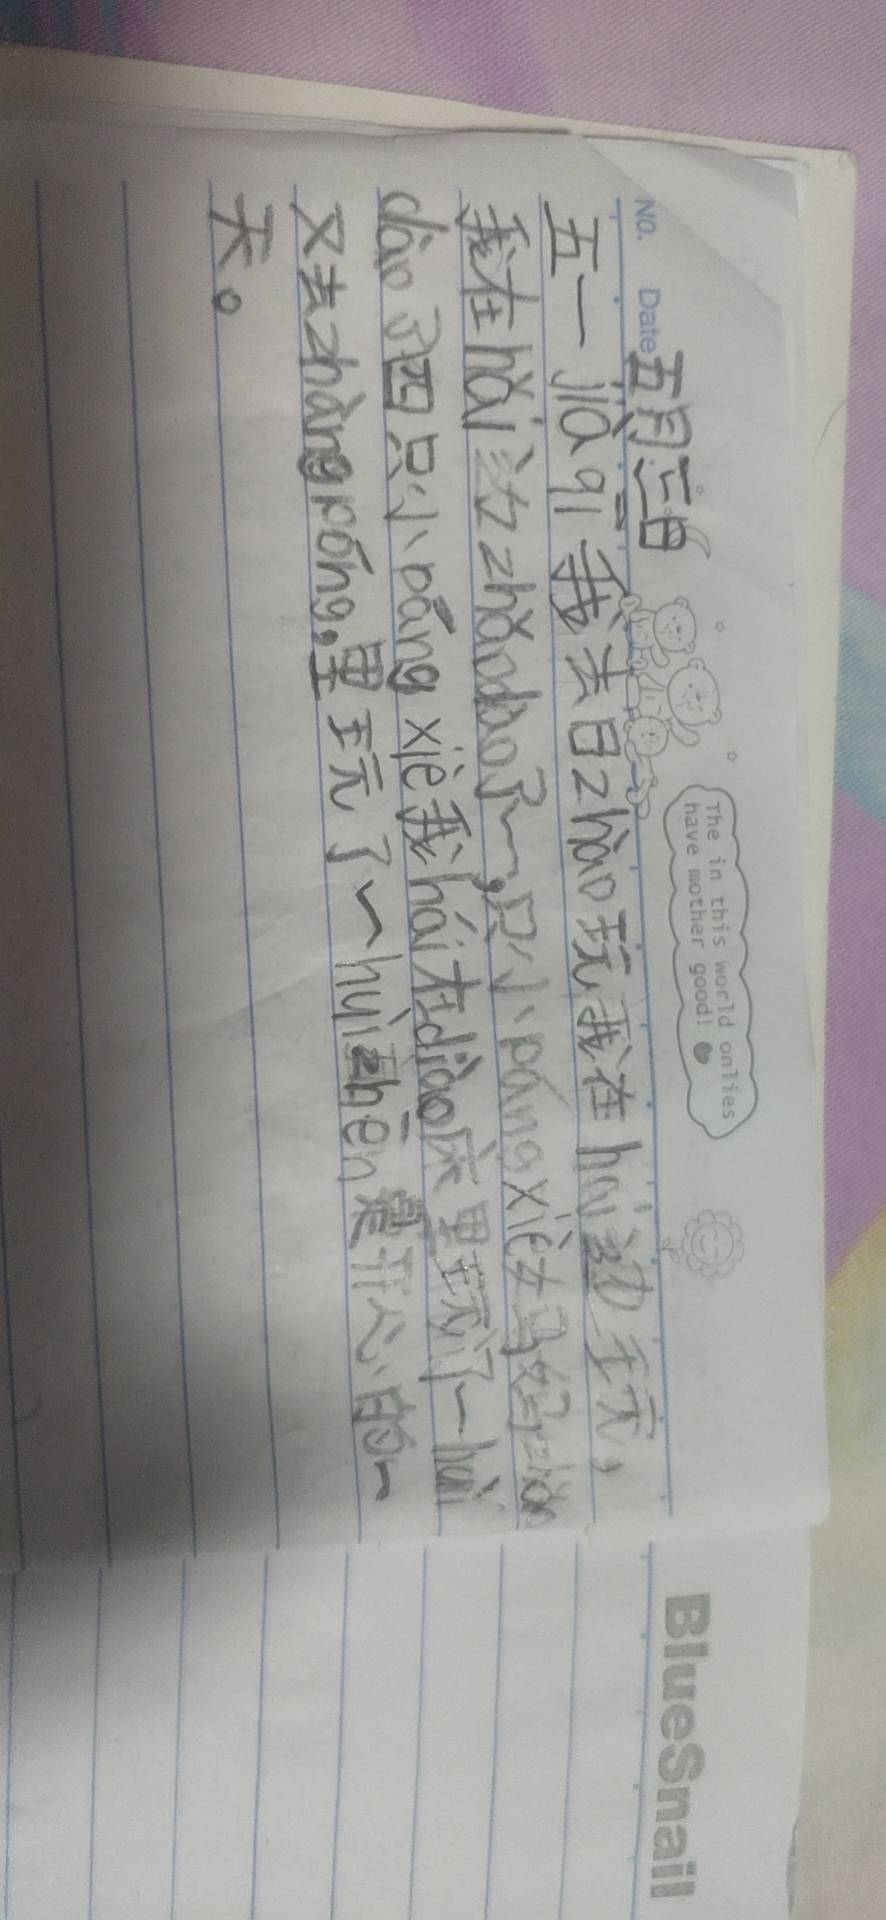 No. Date 五月二日
The in this world onlies
have mother good!
五一jià qī我去日zhào玩我在hǎi边玩,
我在hǎi边zhǎodào了一,只小páng xiè妈妈zhǎo
dào了四只小páng xiè我hái在diào床里玩了一huì
又去zhàngpéng,里玩了一huìzhēn是开心的一
天。
BlueSnail